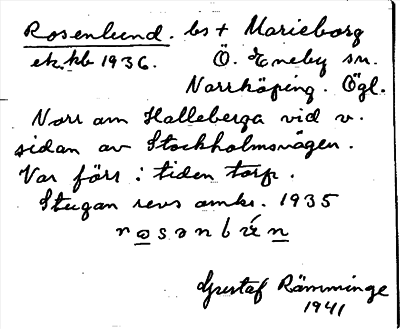 Rosenlund. bs + Marieborg
ek. kb 1936. Ö. Eneby sn.
Norrköping. Ögl.
Norr om Halleberga vid v.
sidan av Stockholmsvägen.
Var förr i tiden torp.
Stugan revs omkr. 1935
Gustaf Rämminge
1941